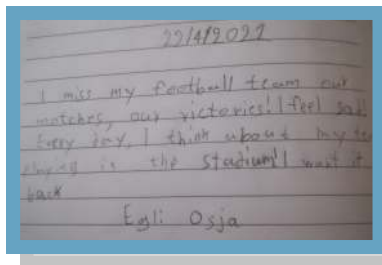 22/4/2021
I miss my football team our
matches, our victories! I feel sad!
Every day, I think about my
playing in the stadium! I want it
back
Egli Osja